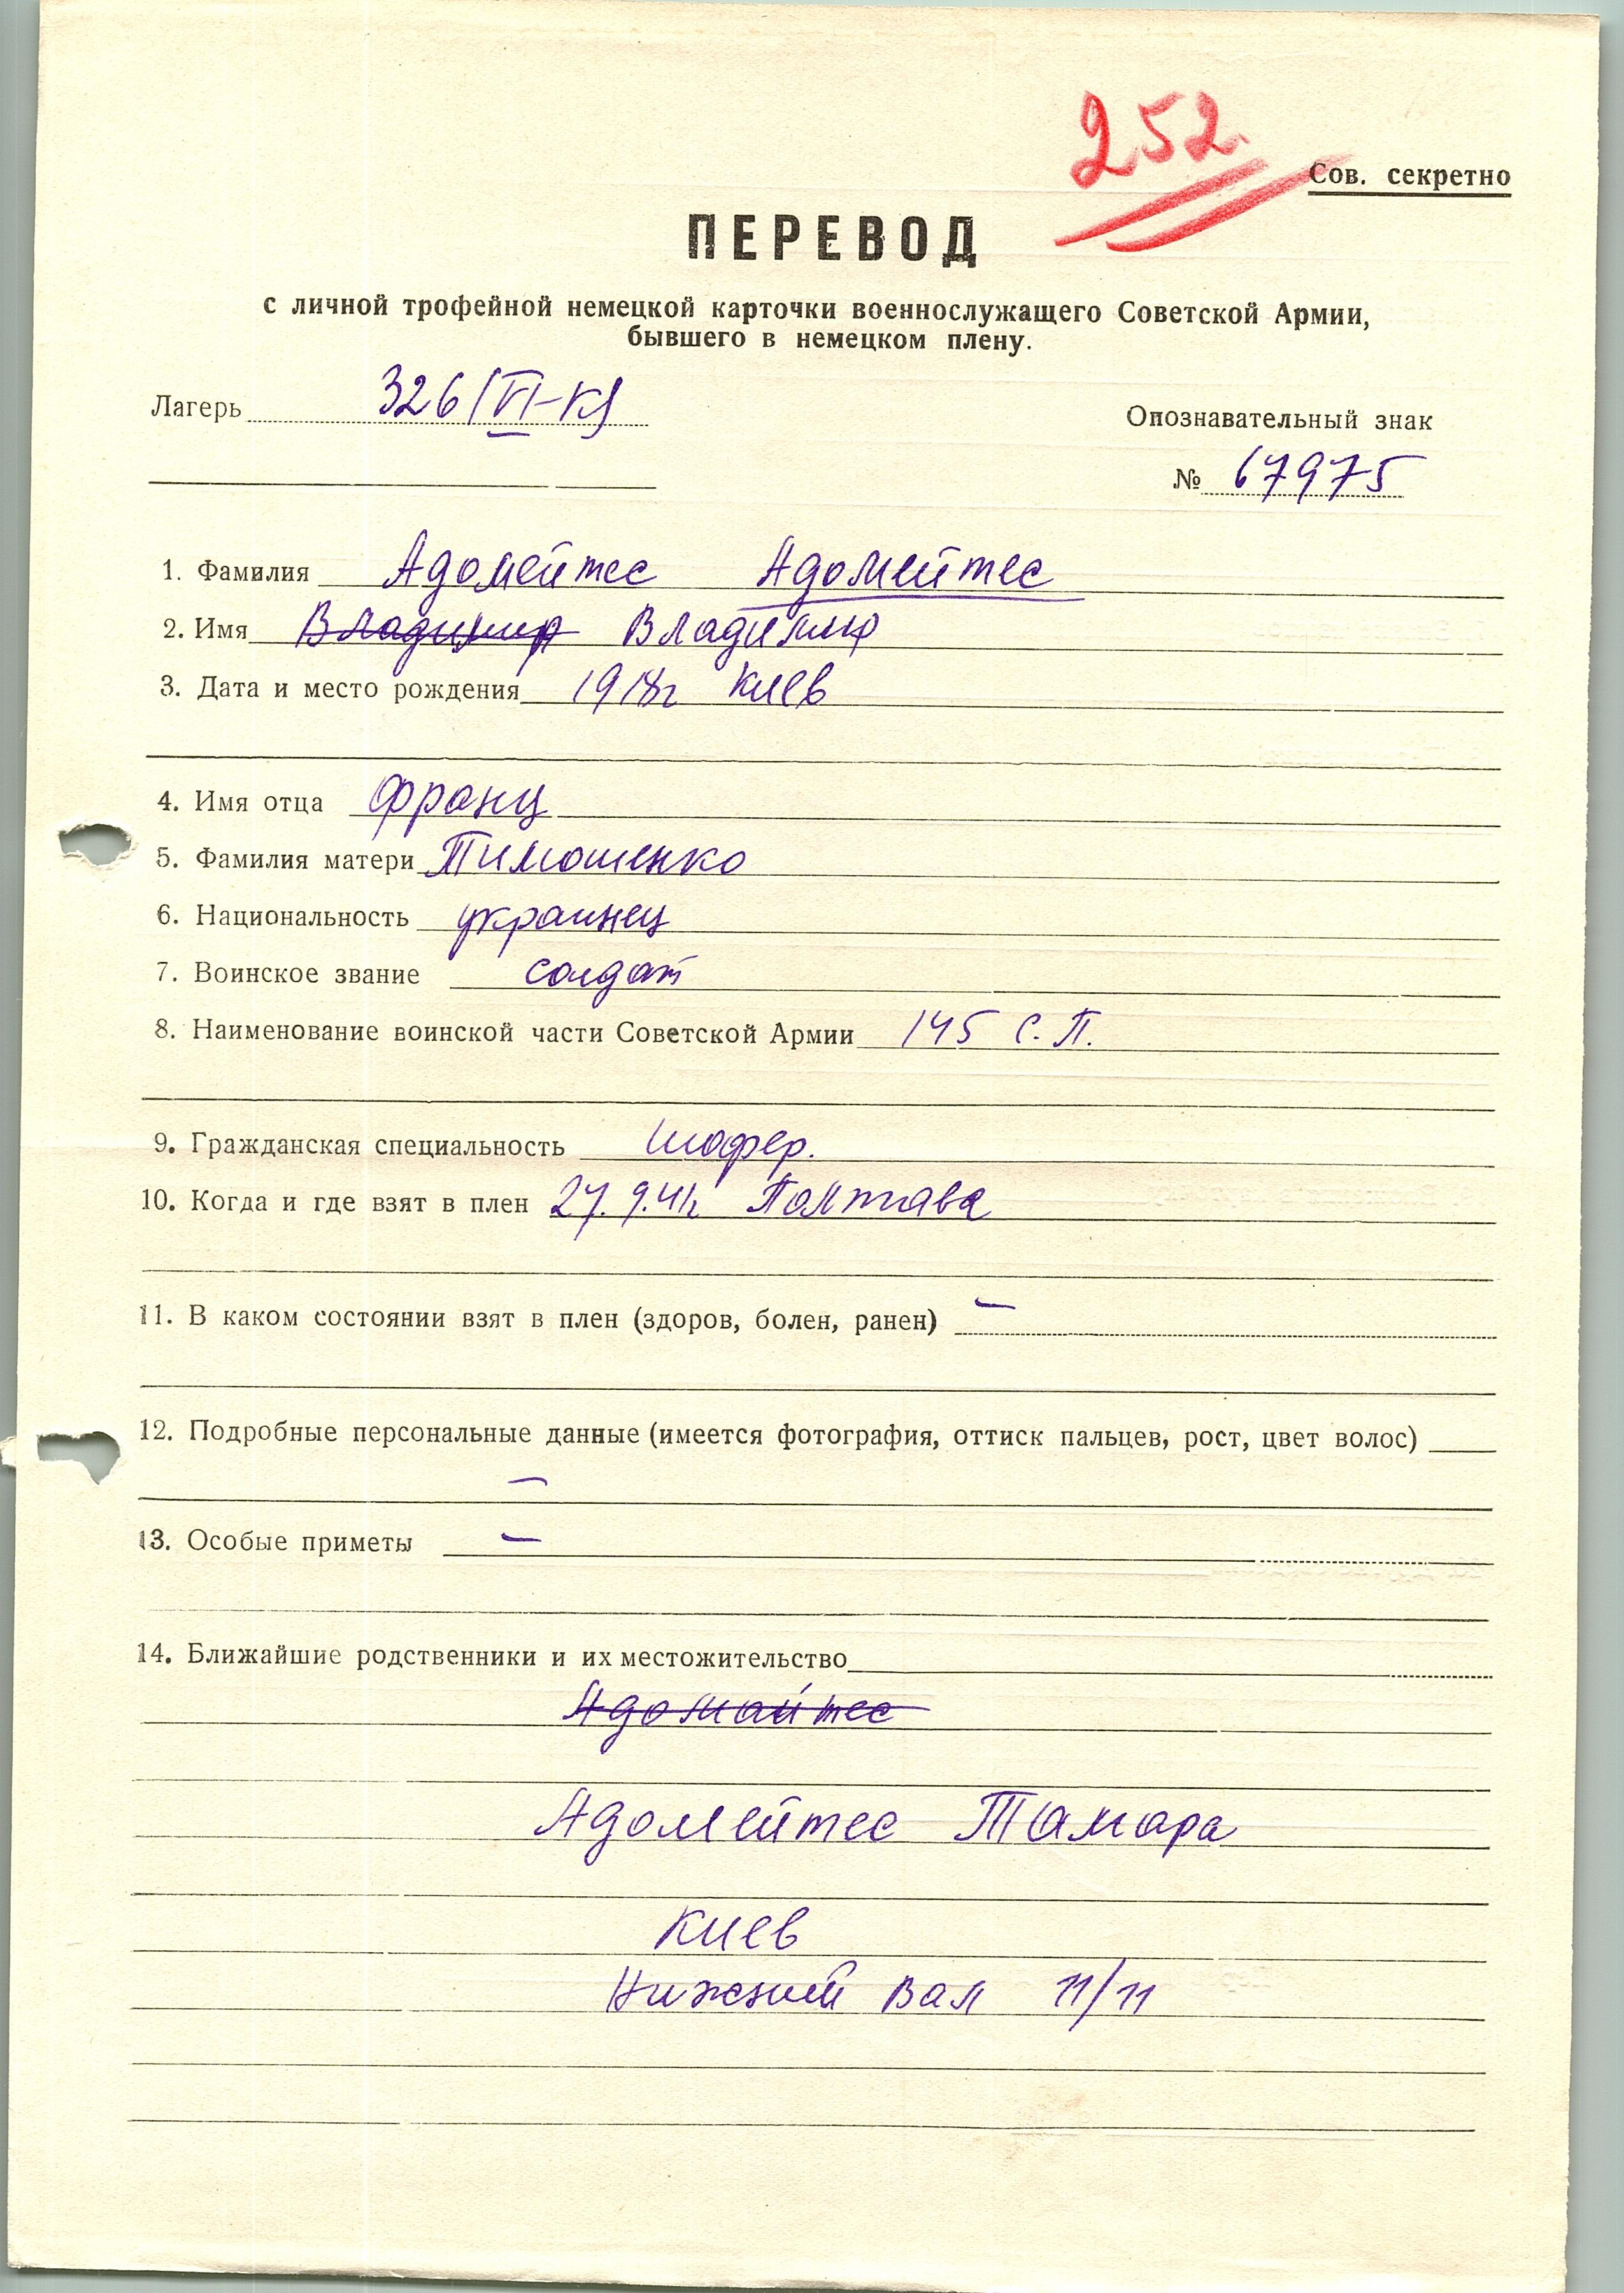 252
Сов. секретно
ПЕРЕВОД
с личной трофейной немецкой карточки военнослужащего Советской Армии,
бывшего в немецком плену.
Лагерь 326 (VI-К)
Опознавательный знак
№ 67975
1. Фамилия Адомейтес Адомейтес
2. Имя Владимир Владимир
3. Дата и место рождения 1918г Киев
4. Имя отца Франц
5. Фамилия матери Тимошенко
6. Национальность украинец
7. Воинское звание солдат
8. Наименование воинской части Советской Армии 145 С. П.
9. Гражданская специальность шофер.
10. Когда и где взят в плен 27.9.41г Полтава
11. В каком состоянии взят в плен (здоров, болен, ранен) —
12. Подробные персональные данные (имеется фотография, оттиск пальцев, рост, цвет волос)
—
13. Особые приметы —
14. Ближайшие родственники и их местожительство
Адомайтес
Адомейтес Тамара
Киев
Нижний Вал 11/11